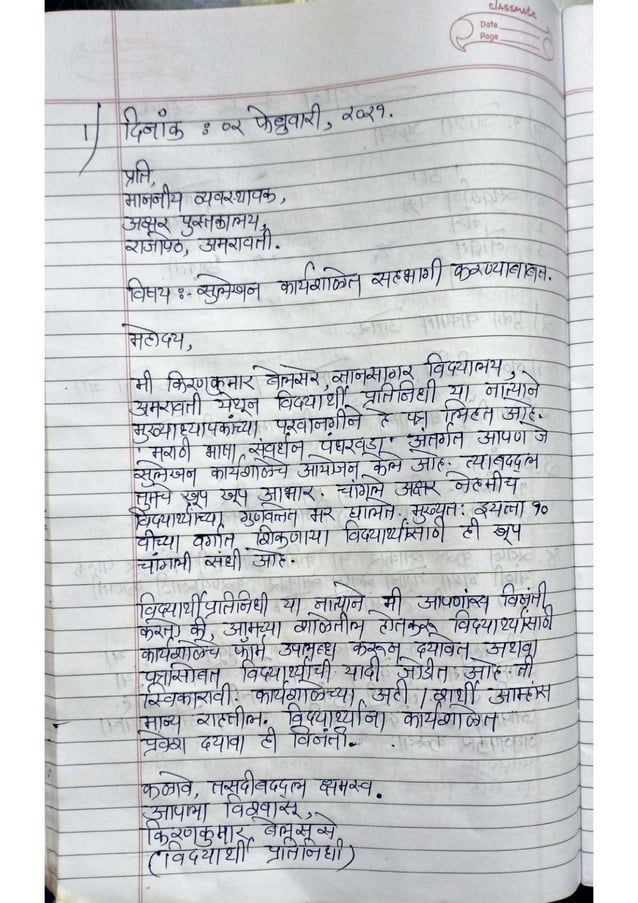 classmate
Date
Page
1) दिनांक : ०२ फेब्रुवारी, २०२१.
प्रति,
माननीय व्यवस्थापक,
अक्षर पुस्तकालय,
राजापेठ, अमरावती.
विषय :- सुलेखन कार्यशाळेत सहभागी करण्याबाबत.
महोदय,
मी किरणकुमार बेलसरे, ज्ञानसागर विदयालय,
अमरावती येथून विदयार्थी प्रतिनिधी या नात्याने
मुख्याध्यापकांच्या परवानगीने हे पत्र लिहित आहे.
'मराठी भाषा संवर्धन पंधरवडा' अंतर्गत आपण जे
सुलेखन कार्यशाळेचे आयोजन केले आहे. त्याबददल
तुमचे खूप खूप आभार. चांगले अक्षर नेहमीच
विदयार्थ्यांच्या गुणवत्तेत भर घालते. मुख्यत: इयत्ता १०
वीच्या वर्गात शिकणाया विदयार्थ्यांसाठी ही खूप
चांगली संधी आहे.
विदयार्थी प्रतिनिधी या नात्याने मी आपणांस विनंती
करतो की, आमच्या शाळेतील होतकरू विदयार्थ्यांसाठी
कार्यशाळेचे फॉर्म उपलब्ध करून दयावेत अथवा
पत्रासोबत विदयार्थ्यांची यादी जोडीत आहे. ती
स्विकारावी. कार्यशाळेच्या अटी / शर्थी आम्हांस
मान्य राहतील. विदयार्थ्यांना कार्यशाळेत
प्रवेश दयावा ही विनंती.
कळावे, तसदीबददल क्षमस्व.
आपला विश्वासू,
किरणकुमार
(विदयार्थी प्रतिनिधी)